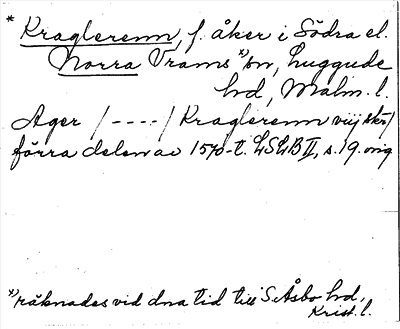 * Kraglerenn, f. åker i Södra el.
Norra Vrams *) sn, Luggude
hd, Malm. l.
Ager /----/ Kraglerenn viij skr/
förra delen av 1570-t. LSLB II, s. 19. orig
*) räknades vid dna tid till S. Åsbo hd,
Krist. l.